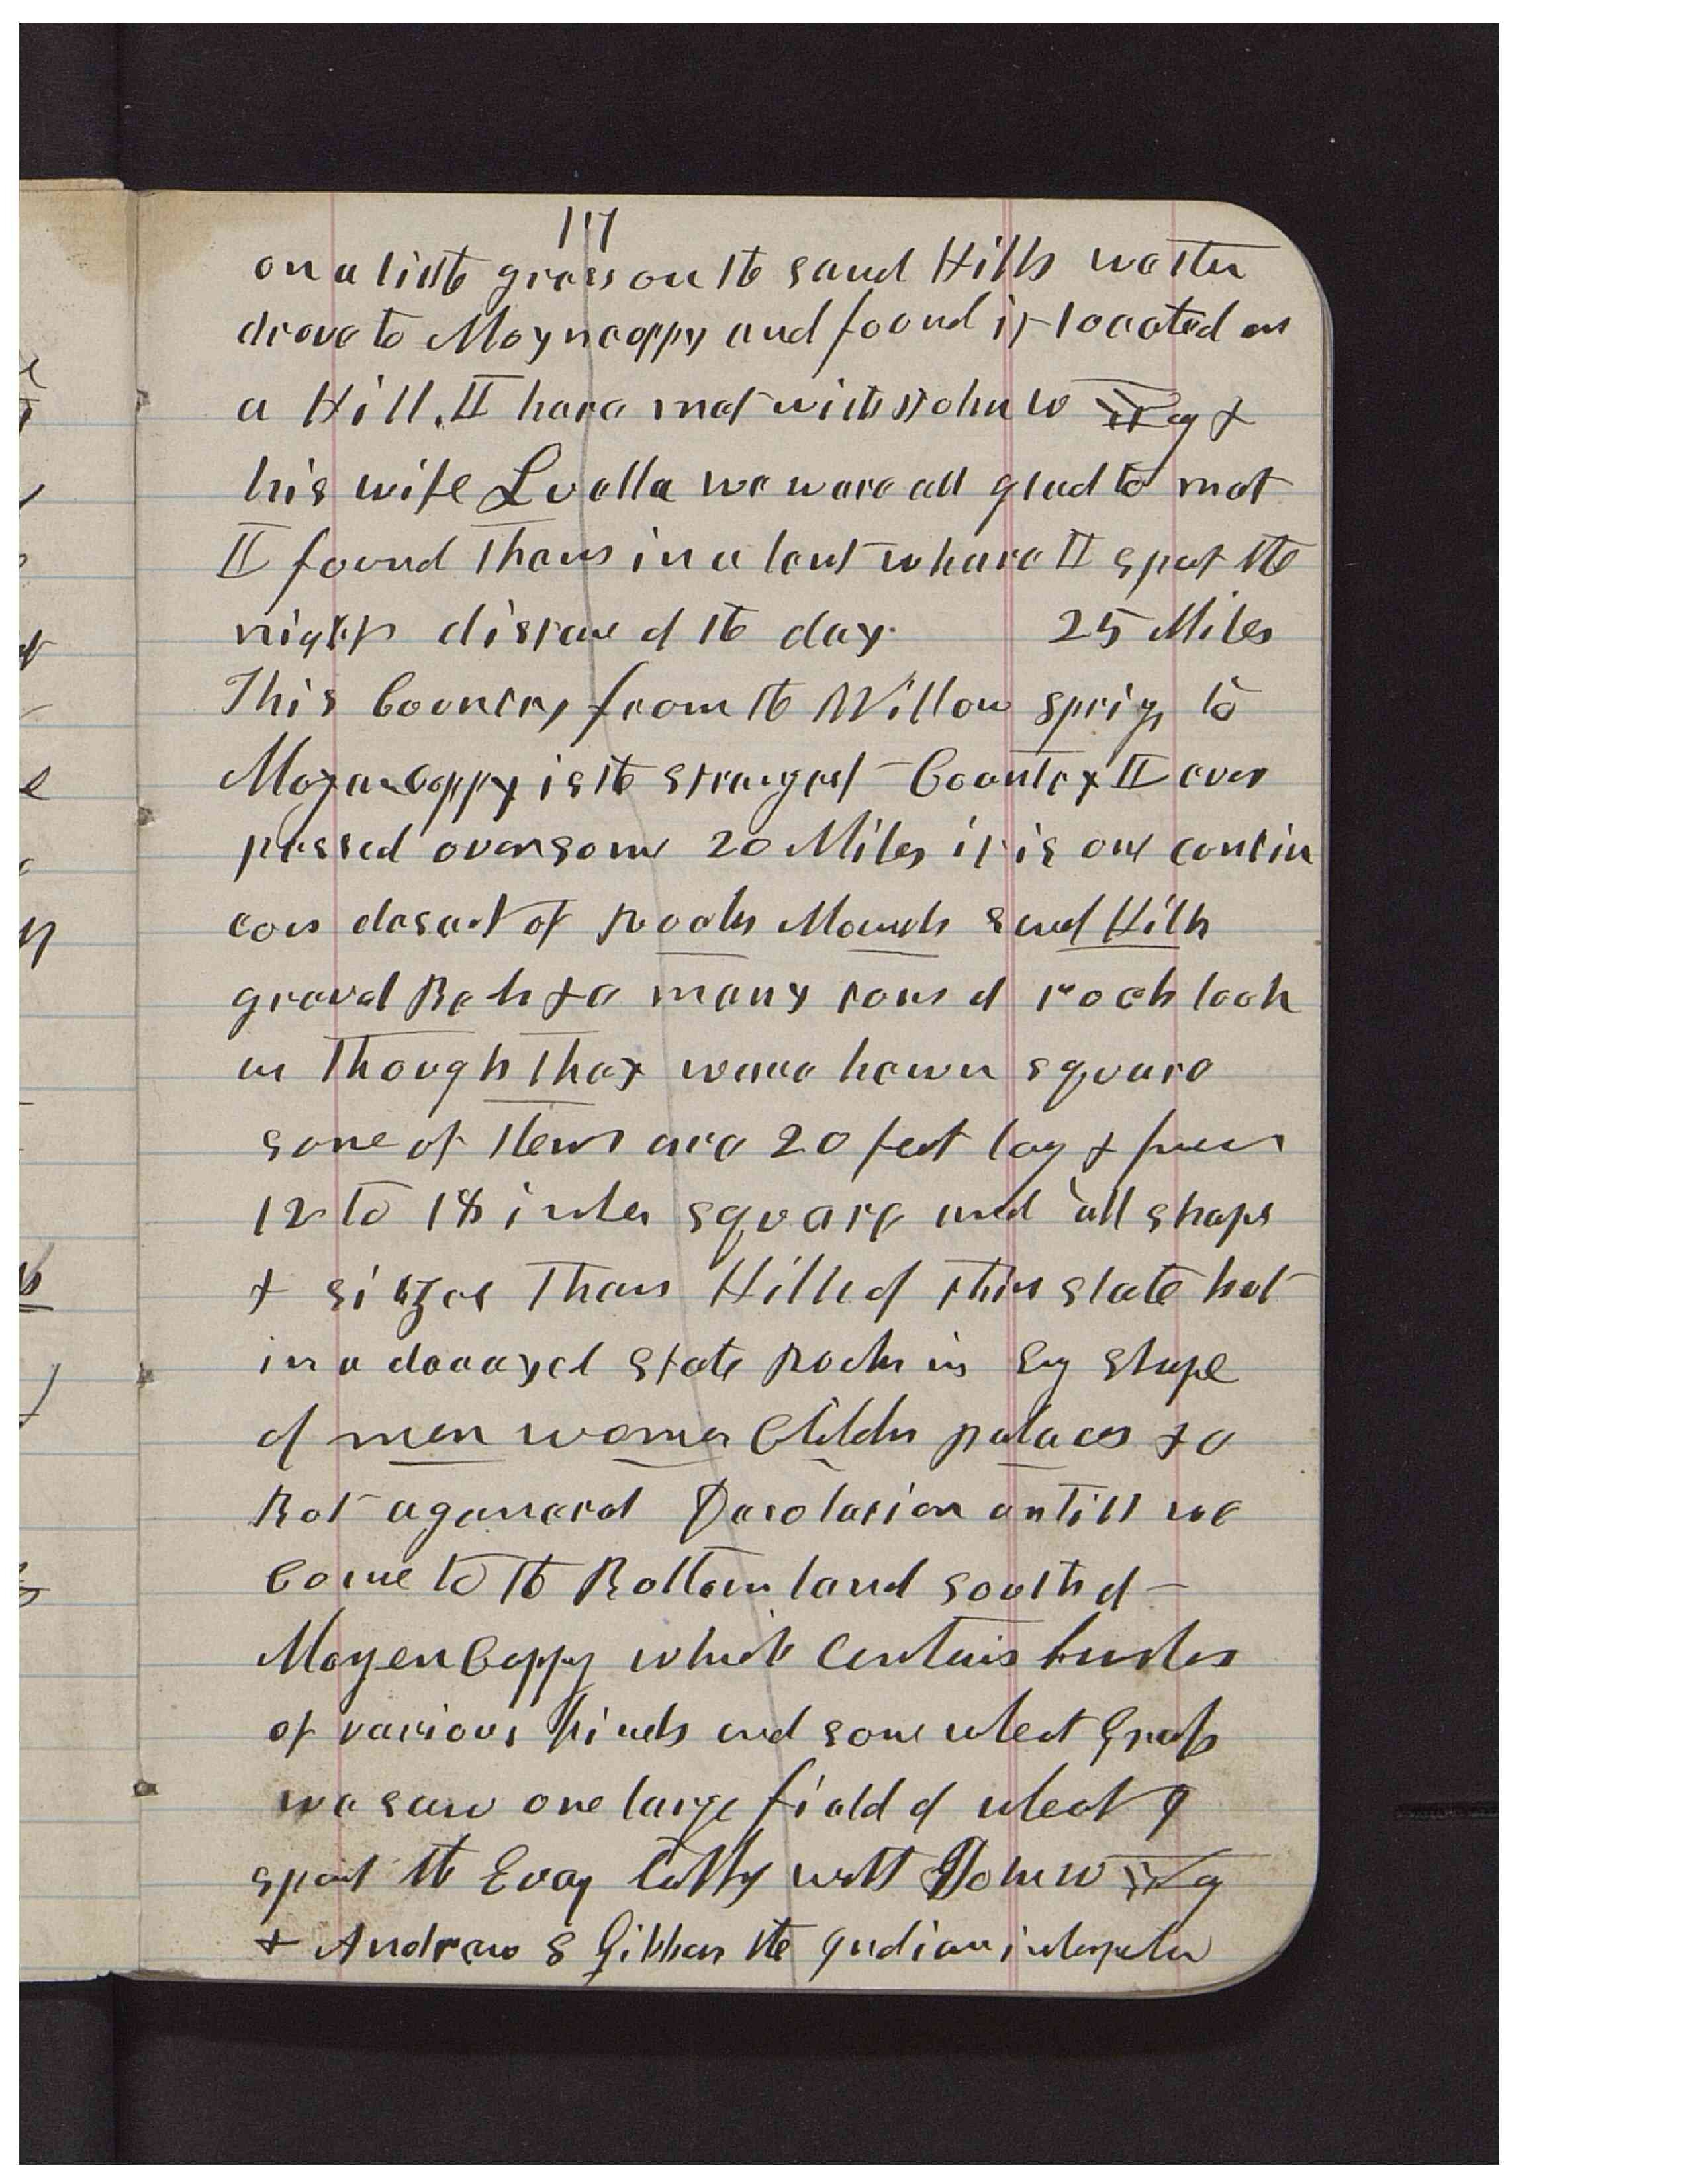 117
on a little grass on the sand Hills we then
drove to Moyncoppy and found it located on
a Hill. I here met with John W Tag &
his wife Luella we were all glad to met
I found Them in a tent where I spent the
night distance of the day 25 Miles
This Country from the Willow springs to
Moyancoppy is the strangest Country I ever
passed over some 20 Miles it is one contin
eous desert of Rocks Mounds sand Hills
gravel Beds &c many rows of rock look
as Though They were hewn square
some of them are 20 feet long & from
12 to 18 inches square and all shaps
& sizes Than Hills of thin slate but
in a decayed state Rocks in evry shape
of men women Childrn palaces &c
But a general Desolation untill we
Come to the Bottom land south of
Moyencoppy which contains bushes
of various kinds and some wheat Grass
we saw one large field of wheat I
spent the Eveng talking with John W Tag
& Andrew S Gibbon the Indian interpeter